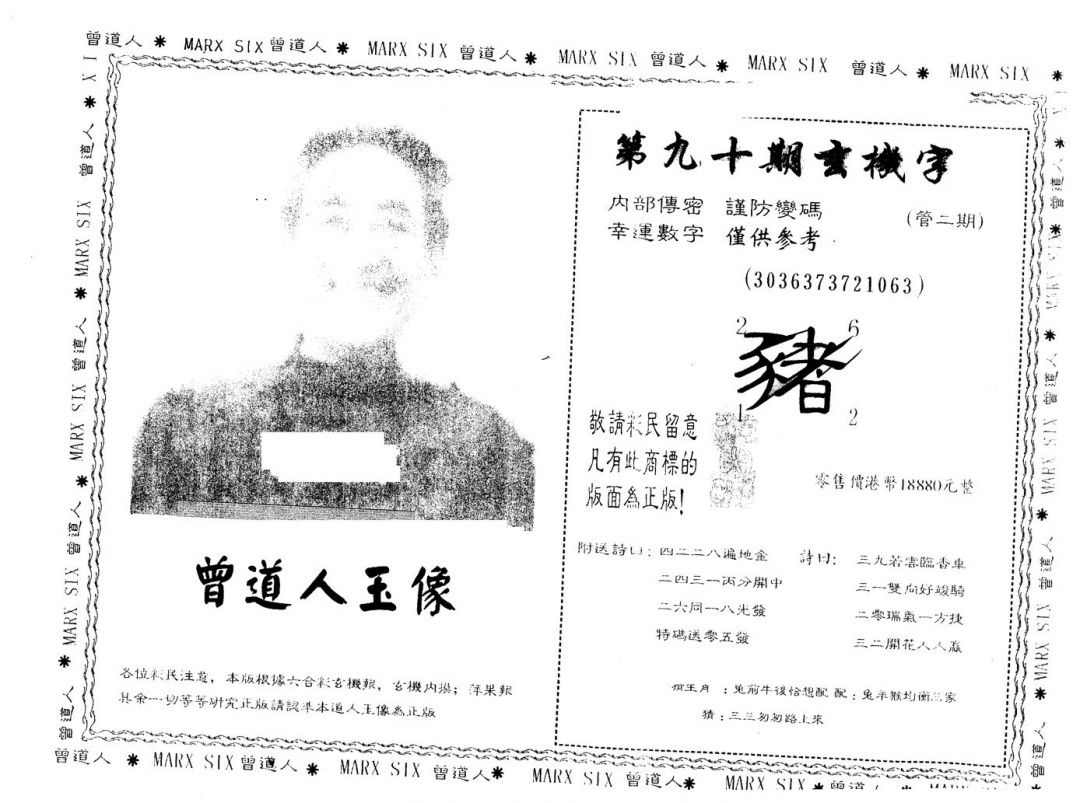 曾道人 * MARX SIX 曾道人 * MARX SIX 曾道人 * MARX SIX 曾道人 * MARX SIX 曾道人 * MARX SIX *
第九十期玄機字
內部傳密 謹防變碼
幸運數字 僅供參考
(管二期)
(3036373721063)
2 6
豬
1 2
敬請彩民留意
凡有此商標的
版面為正版!
零售價港幣18880元整
附送詩曰：四二二八遍地金
二四三一丙分開中
二六同一八光發
特碼送零五發
詩曰： 三九若雲臨香車
三一雙向好竣騎
二零瑞氣一方捷
三二開花人人贏
：兔前牛後恰想配 配：兔羊猴均衡三家
猜：三三匆匆路上來
曾道人玉像
各位彩民注意，本版根據六合彩玄機報，玄機內報；蘋果報
其余一切等等研究正版請認準本道人玉像為正版
曾道人 * MARX SIX 曾道人 * MARX SIX 曾道人 * MARX SIX 曾道人 * MARX SIX 曾道人 * MARX SIX